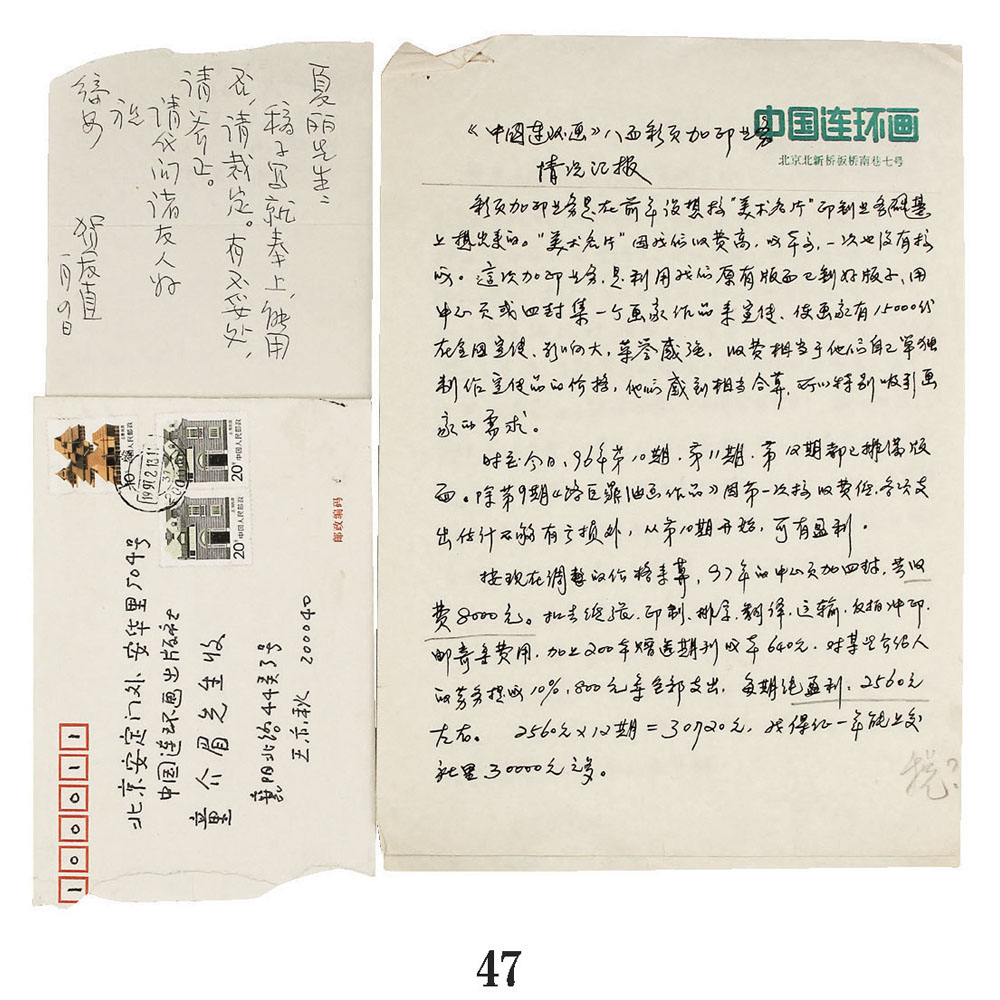 夏丽先生：
稿子写就奉上，能用
否，请裁定。有不妥处，
请斧正。
请代问诸友人好
祝
编安
贺友直
一月9日
10分
中国人民邮政
20分
中国人民邮政
20分
中国人民邮政
邮政编码
100011
北京安定门外安华里504号
中国连环画出版社
童介眉先生收
襄阳北路44弄3号
王亦秋 200040
中国连环画
北京北新桥板桥南巷七号
《中国连环画》八面彩页加印业务
情况汇报
彩页加印业务是在前年设想接“美术名片”印制业务的基
上想出来的。“美术名片”因我们收费高，，一次也没有接
成。这次加印业务，是利用我们原有版面已制好版子，用
中心页或四封集一个画家作品来宣传、使画家有15000份
在全国宣传、影响大，荣誉感强，收费相当于他们自己单独
制作宣传品的价格，他们感到相当合算，可以特别吸引画
家的需求。
时至今日，96年第10期、第11期、第12期都已排满版
面。除第9期《油画作品》因第一次接收费低、各项支
出估计不够有亏损外，从第10期开始，可有盈利。
按现在调整的价格来算，97年的中心页加四封，共收
费8000元。扣去纸张、印制、排字、翻译、运输、反拍冲印、
邮寄等费用，加上200本赠送期刊成本640元，对某些介绍人
的劳务提成10%，800元等全部支出，每期纯盈利：2560元
左右。 2560元×12期=30720元，我保证一年能上交
社里30000元之多。
税？
47